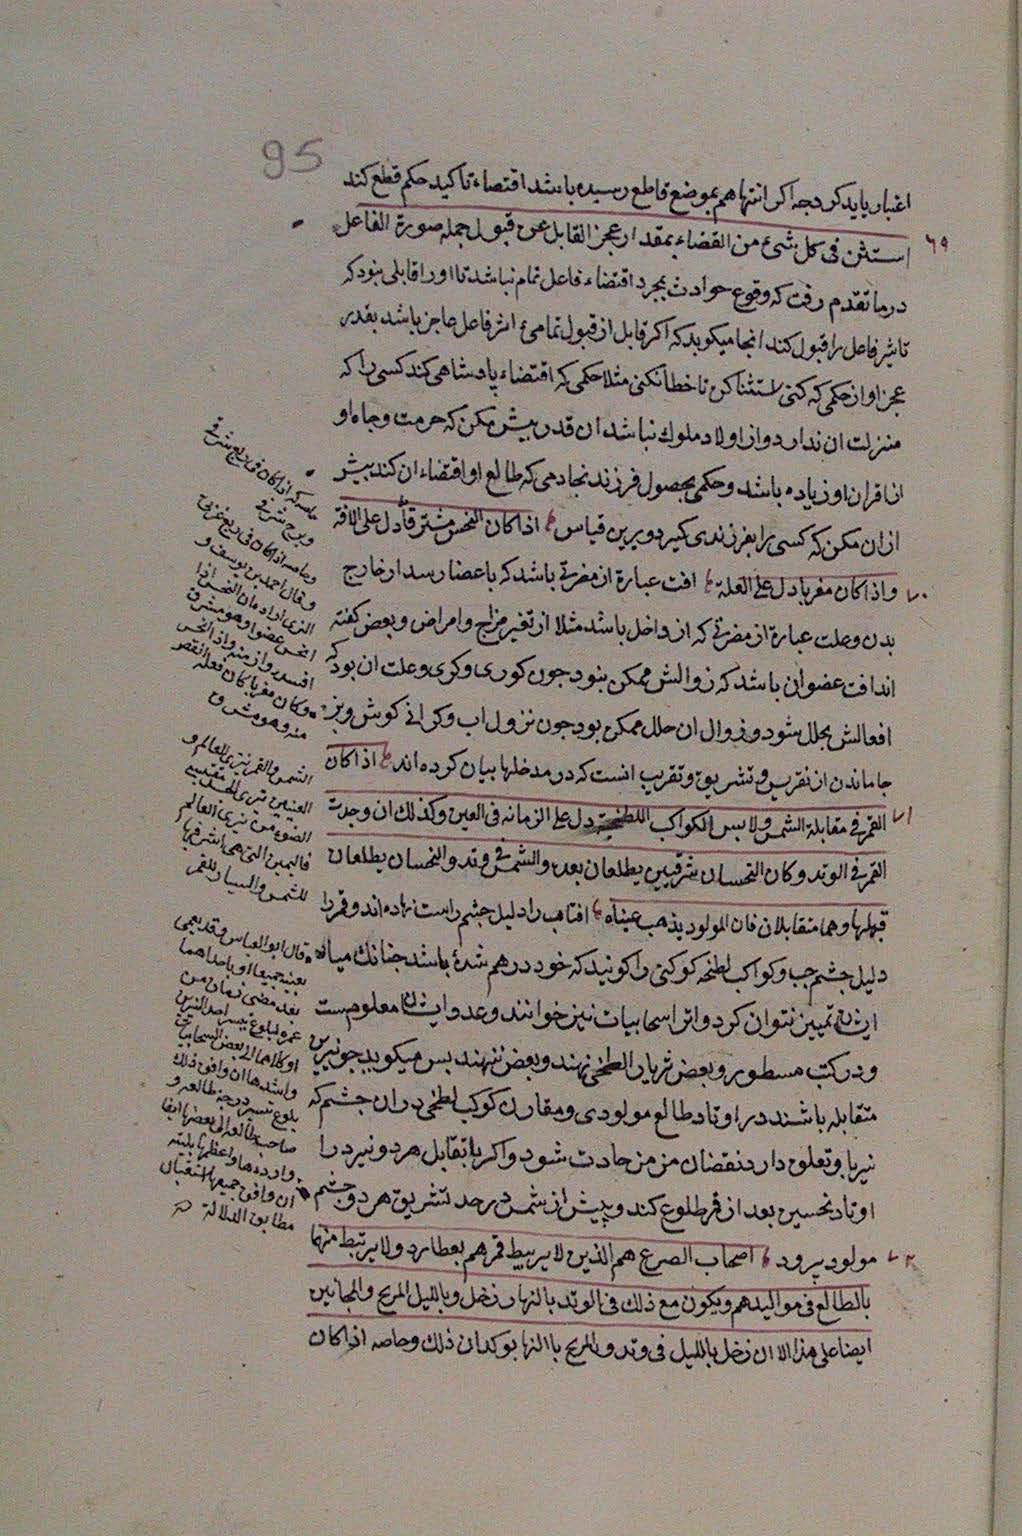 95
اعتبار باید کرد جه اکر انتها هم بموضع قاطع رسیده باشد اقتضاء تاکید حکم قطع کند
٦٩ استثن فی کل شیء من القضاء بمقدار عجز القابل عن قبول جمله صورة الفاعل
در ما تقدم رفت که وقوع حوادث بمجرد اقتضاء فاعل تمام نباشد تا او را قابلی بنود که
تاثیر فاعل را قبول کند انجا میکوید که اکر قابل از قبول تمامئ اثر فاعل عاجز باشد بقدر
عجز او از حکمی که کنی استثنا کن تا خطا نکنی مثلا حکمی که اقتضاء پادشاهی کند کسی را که
منزلت ان ندارد و از اولاد ملوک نباشد ان قدر بیش مکن که حرمت و جاه او
از اقران او زیاده باشد و حکمی بحصول فرزند نجادمی که طالع او اقتضاء ان کند بیش
از ان مکن که کسی را بفرزندی کیرد و برین قیاس اذا کان النحس مشرقا دل علی الافة
٧٠ و اذا کان مغربا دل علی العلة افت عبارة از مضرتی باشد که باعضا رسد از خارج
بدن و علت عبارة از مضرتی که از داخل باشد مثلا از تغیر مزاج و امراض و بعض کفته
اند افت عضو ان باشد که زوالش ممکن بنود جون کوری و کری و علت ان بود که
افعالش بخلل شود و زوال ان خلل ممکن بود جون نزول اب و کرانی کوش و بر
جا ماندن از نقریس و تشریق و تغریب انست که در مدخلها بیان کرده اند اذا کان
٧١ القمر فی مقابلة الشمس و لابس الکواکب اللطخیة دل علی الزمانه فی العین و کذلک ان وجدت
القمر فی الوتد و کان النحسان شرقیین یطلعان بعده و الشمس فی وتد و النحسان یطلعان
قبلها و هما متقابلان فان المولود یذهب عیناه افتاب را دلیل جشم راست نهاده اند و قمر را
دلیل جشم جب و کواکب لطخه کوکبی را کویند که خود در هم شده باشد جنانک میان
ایشان تمییز نتوان کرد و انرا سحابیات نیز خوانند و عدد ایشان معلومست
و در کتب مسطور و بعض ثریا را لطخی نهند و بعض ننهند بس میکوید جو نیرین
متقابله باشند در اوتاد طالع مولودی و مقارن کوکب لطخی دران جشم که
نیر باو تعلق دارد نقصان مزمن حادث شود و اکر با تقابل هر دو نیر در
اوتاد نحسین بعد از قمر طلوع کند و پیش از شمس در حد تشریق هر دو جشم
٧٢ مولود برود اصحاب الصرع هم الذین لا یرتبط قمرهم بعطارد و لا یرتبط منهما
بالطالع فی موالیدهم و یکون مع ذلک فی الوتد بالنهار زحل و باللیل المریخ و المجانین
ایضا علی هذا الا ان زحل باللیل فی وتد و المریخ بالنهار یوکدان ذلک و خاصه اذا کان
خاصه که اذا کان فی ربع شرقی
و برج شرقی
و خاصه اذا کان فی ربع غربی
و قال احمد بن یوسف و
الذی اراد من القصد اذا
انحس عضوا و هو مشرق
افسده و ازمنه و اذا انحس
و کان مغربا کان فعله انقص
منه و هو مشرق
الشمس و القمر نیری العالم و
العینین نیری المقتبس
الضوء من نیری العالم
فالیمین التی هی اشرفها
للشمس و الیسار للقمر
قال ابو العباس و قد یعمی
بعینه جمیعا او باحداهما
بعد مضی زمان من
عمره لبلوغ تسییر احد النیرین
او کلاهما الی بعض السحابیة
و اشدها ان وافق ذلک
بلوغ تسییر درجة طالعه و
صاحب طالعه الی بعضها ایضا
و اردءها و اعظمها بلیته
ان وافق جمیعها استقبال
مطابق الدلالة